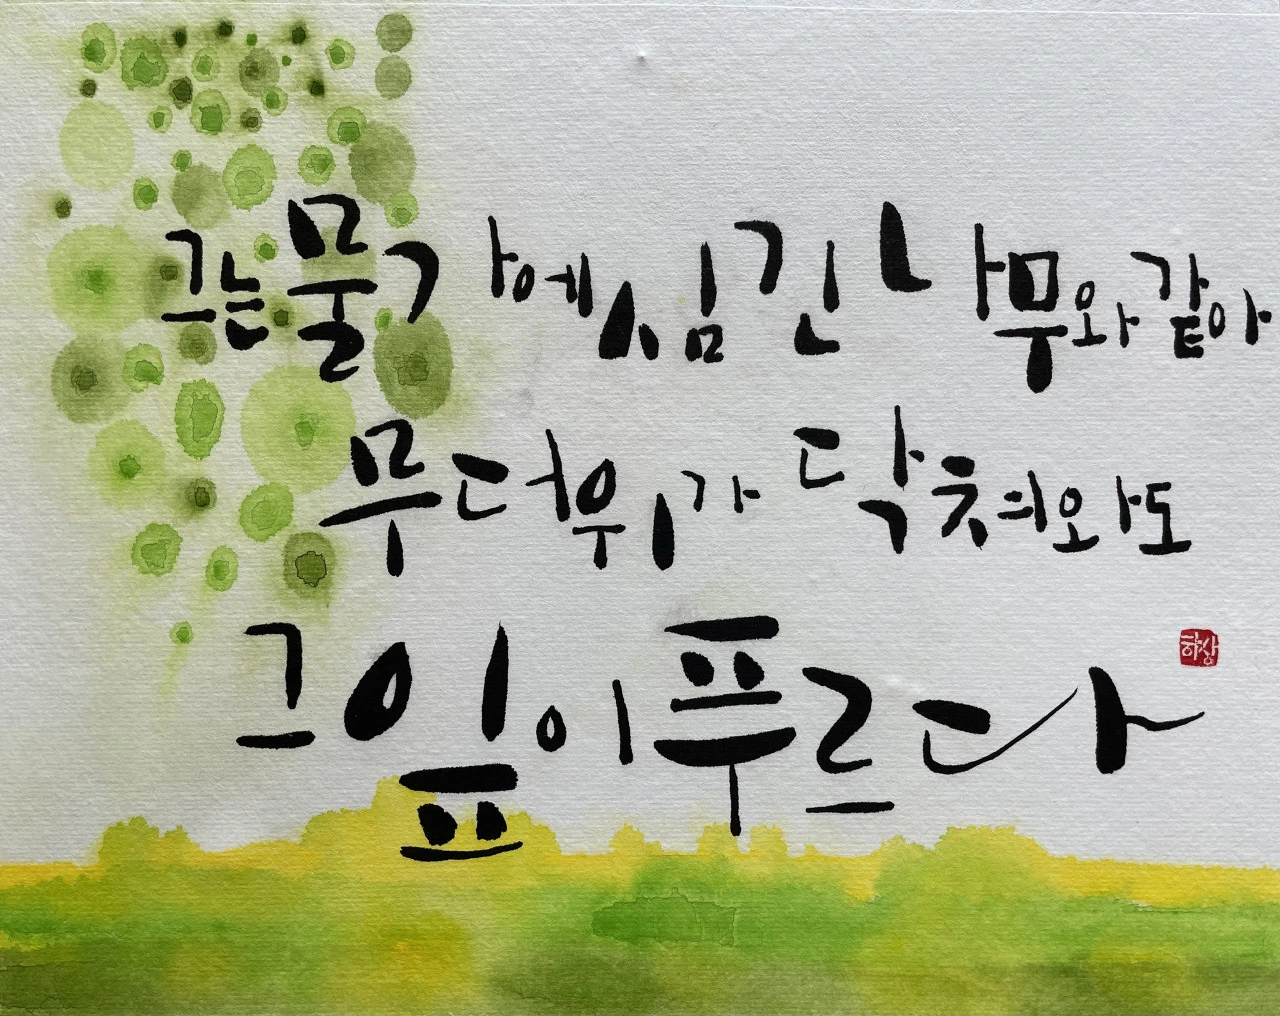 그는 물가에 심긴 나무와 같아
무더위가 닥쳐와도
그 잎이 푸르다
하상